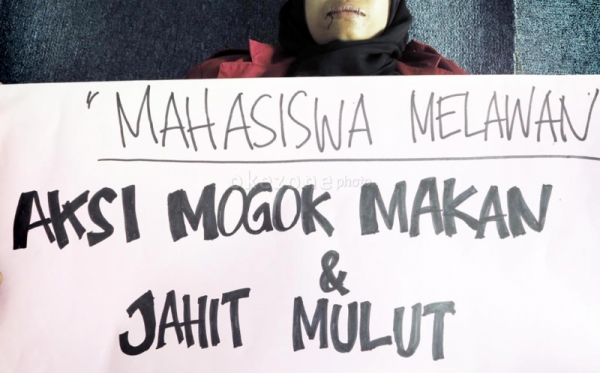 " MAHASISWA MELAWAN
okezone photo
AKSI MOGOK MAKAN
&
JAHIT MULUT